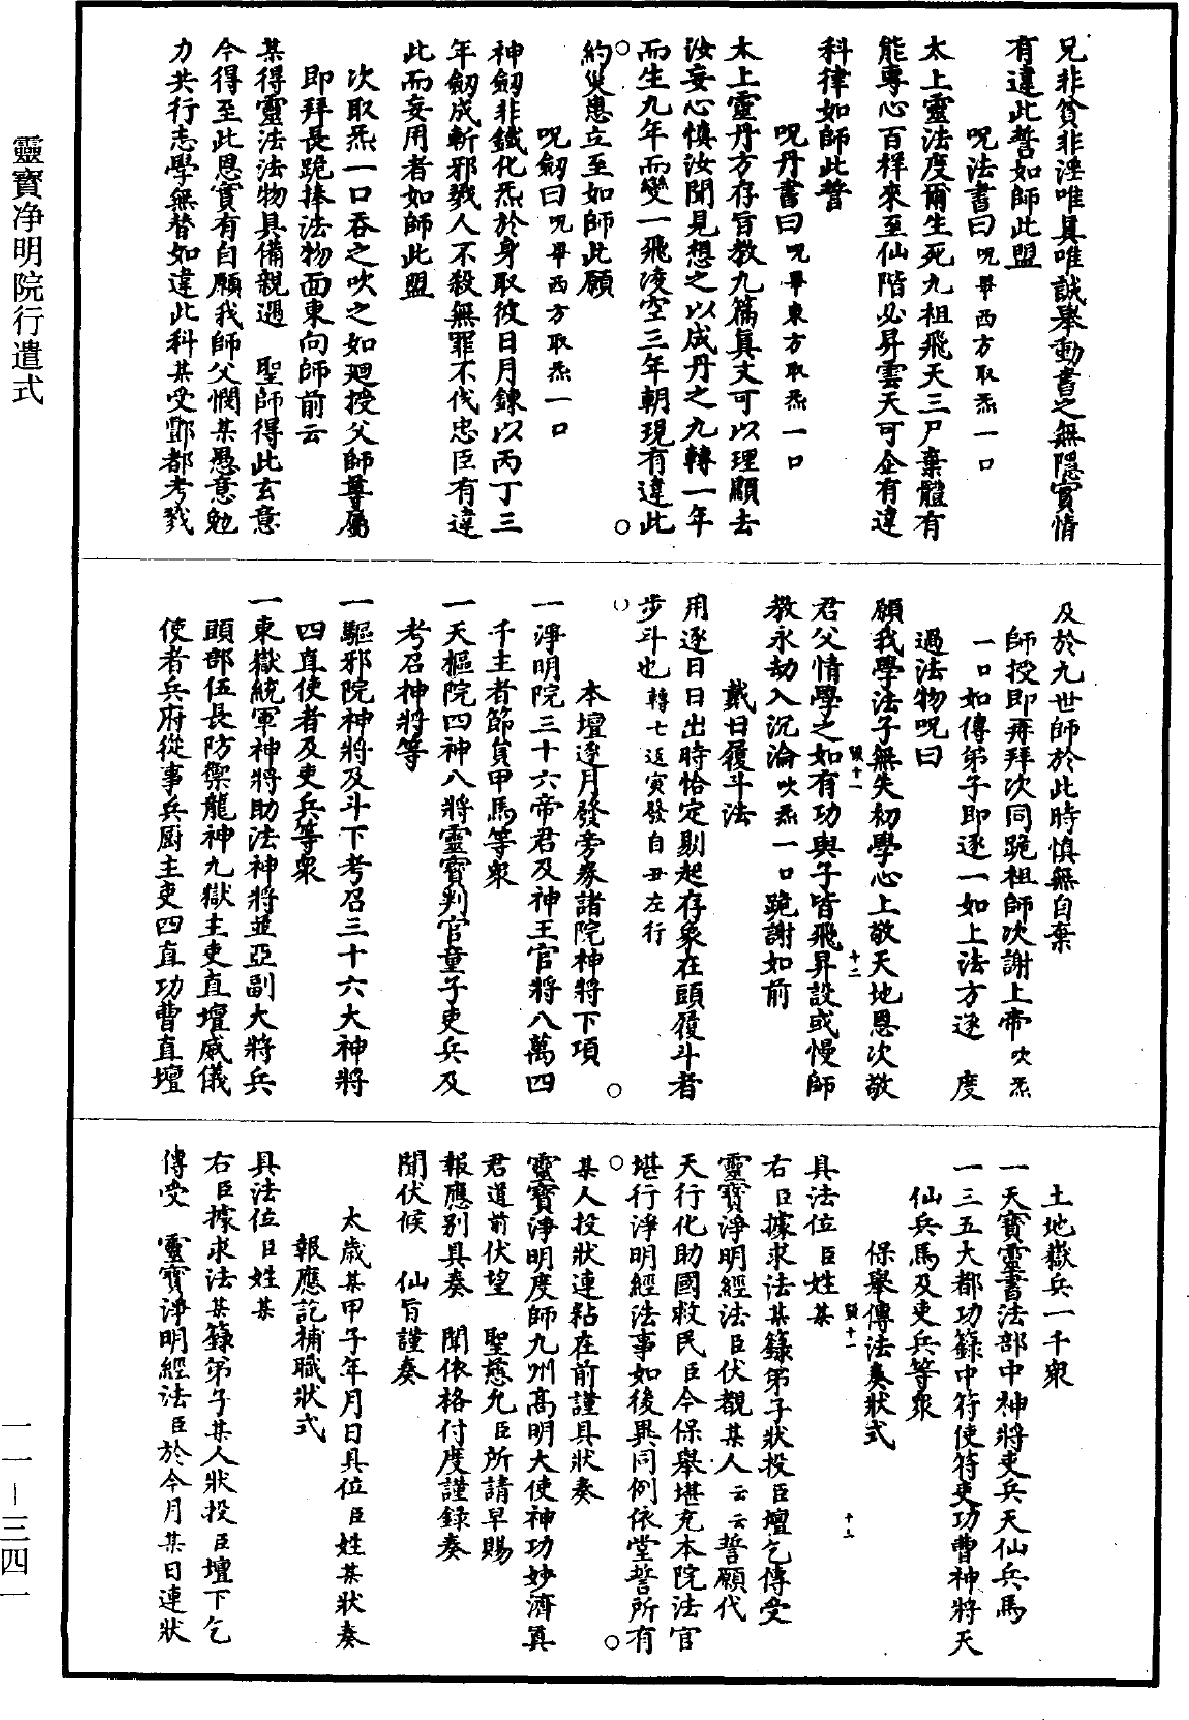 靈寶净明院行遣式
兄非貧非淫唯真唯誠舉動書之無隱實情
有違此誓如師此盟
呪法書曰呪畢西方取炁一口
太上靈法度爾生死九祖飛天三尸棄體有
能專心百樣來至仙階必昇雲天可企有違
科律如師此誓
呪丹書曰呪畢東方取炁一口
太上靈丹方存旨教九篇真文可以理顯去
汝妄心慎汝聞見想之以成丹之九轉一年
而生九年而變一飛凌空三年朝現有違此
約災患立至如師此願
呪劒曰呪畢西方取炁一口
神劒非鐵化炁於身取彼日月鍊以丙丁三
年劒成斬邪戮人不殺無罪不伐忠臣有違
此而妄用者如師此盟
次取炁一口吞之吹之如廻授父師尊屬
即拜長跪捧法物面東向師前云
某得靈法法物具備親遇 聖師得此玄意
今得至此恩實有自願我師父憫某愚意勉
力共行志學無替如違此科某受酆都考戮
及於九世師於此時慎無自棄
師授即再拜次同跪祖師次謝上帝吹炁
一口如傳弟子即逐一如上法方逐 度
過法物呪曰
願我學法子無失初學心上敬天地恩次敬
君父情學之如有功與子皆飛昇設或慢師
教永劫入沉淪吹炁一口跪謝如前
戴日履斗法
用逐日日出時恰定剔起存象在頭履斗者
步斗也轉七返寅發自丑左行
本壇逐月發旁券諸院神將下項
一淨明院三十六帝君及神王官將八萬四
千主者節負甲馬等衆
一天樞院四神八將靈寶判官童子吏兵及
考召神將等
一驅邪院神將及斗下考召三十六大神將
四直使者及吏兵等衆
一東嶽統軍神將助法神將並亞副大將兵
頭部伍長防禦龍神九獄主吏直壇威儀
使者兵府從事兵廚主吏四直功曹直壇
土地嶽兵一千衆
一天寶靈書法部中神將吏兵天仙兵馬
一三五大都功籙中符使符吏功曹神將天
仙兵馬及吏兵等衆
保舉傳法奏狀式
具法位臣姓某
右臣據求法某籙弟子狀投臣壇乞傳受
靈寶淨明經法臣伏覩某人云云誓願代
天行化助國救民臣今保舉堪充本院法官
堪行淨明經法事如後異同例依堂誓所有
某人投狀連粘在前謹具狀奏
靈寶淨明度師九州高明大使神功妙濟真
君道前伏望 聖慈允臣所請早賜
報應別具奏 聞依格付度謹錄奏
聞伏候 仙旨謹奏
太歲某甲子年月日具位臣姓某狀奏
報應訖補職狀式
具法位臣姓某
右臣據求法某籙弟子某人狀投臣壇下乞
傳受 靈寶淨明經法臣於今月某日連狀
一一－三四一